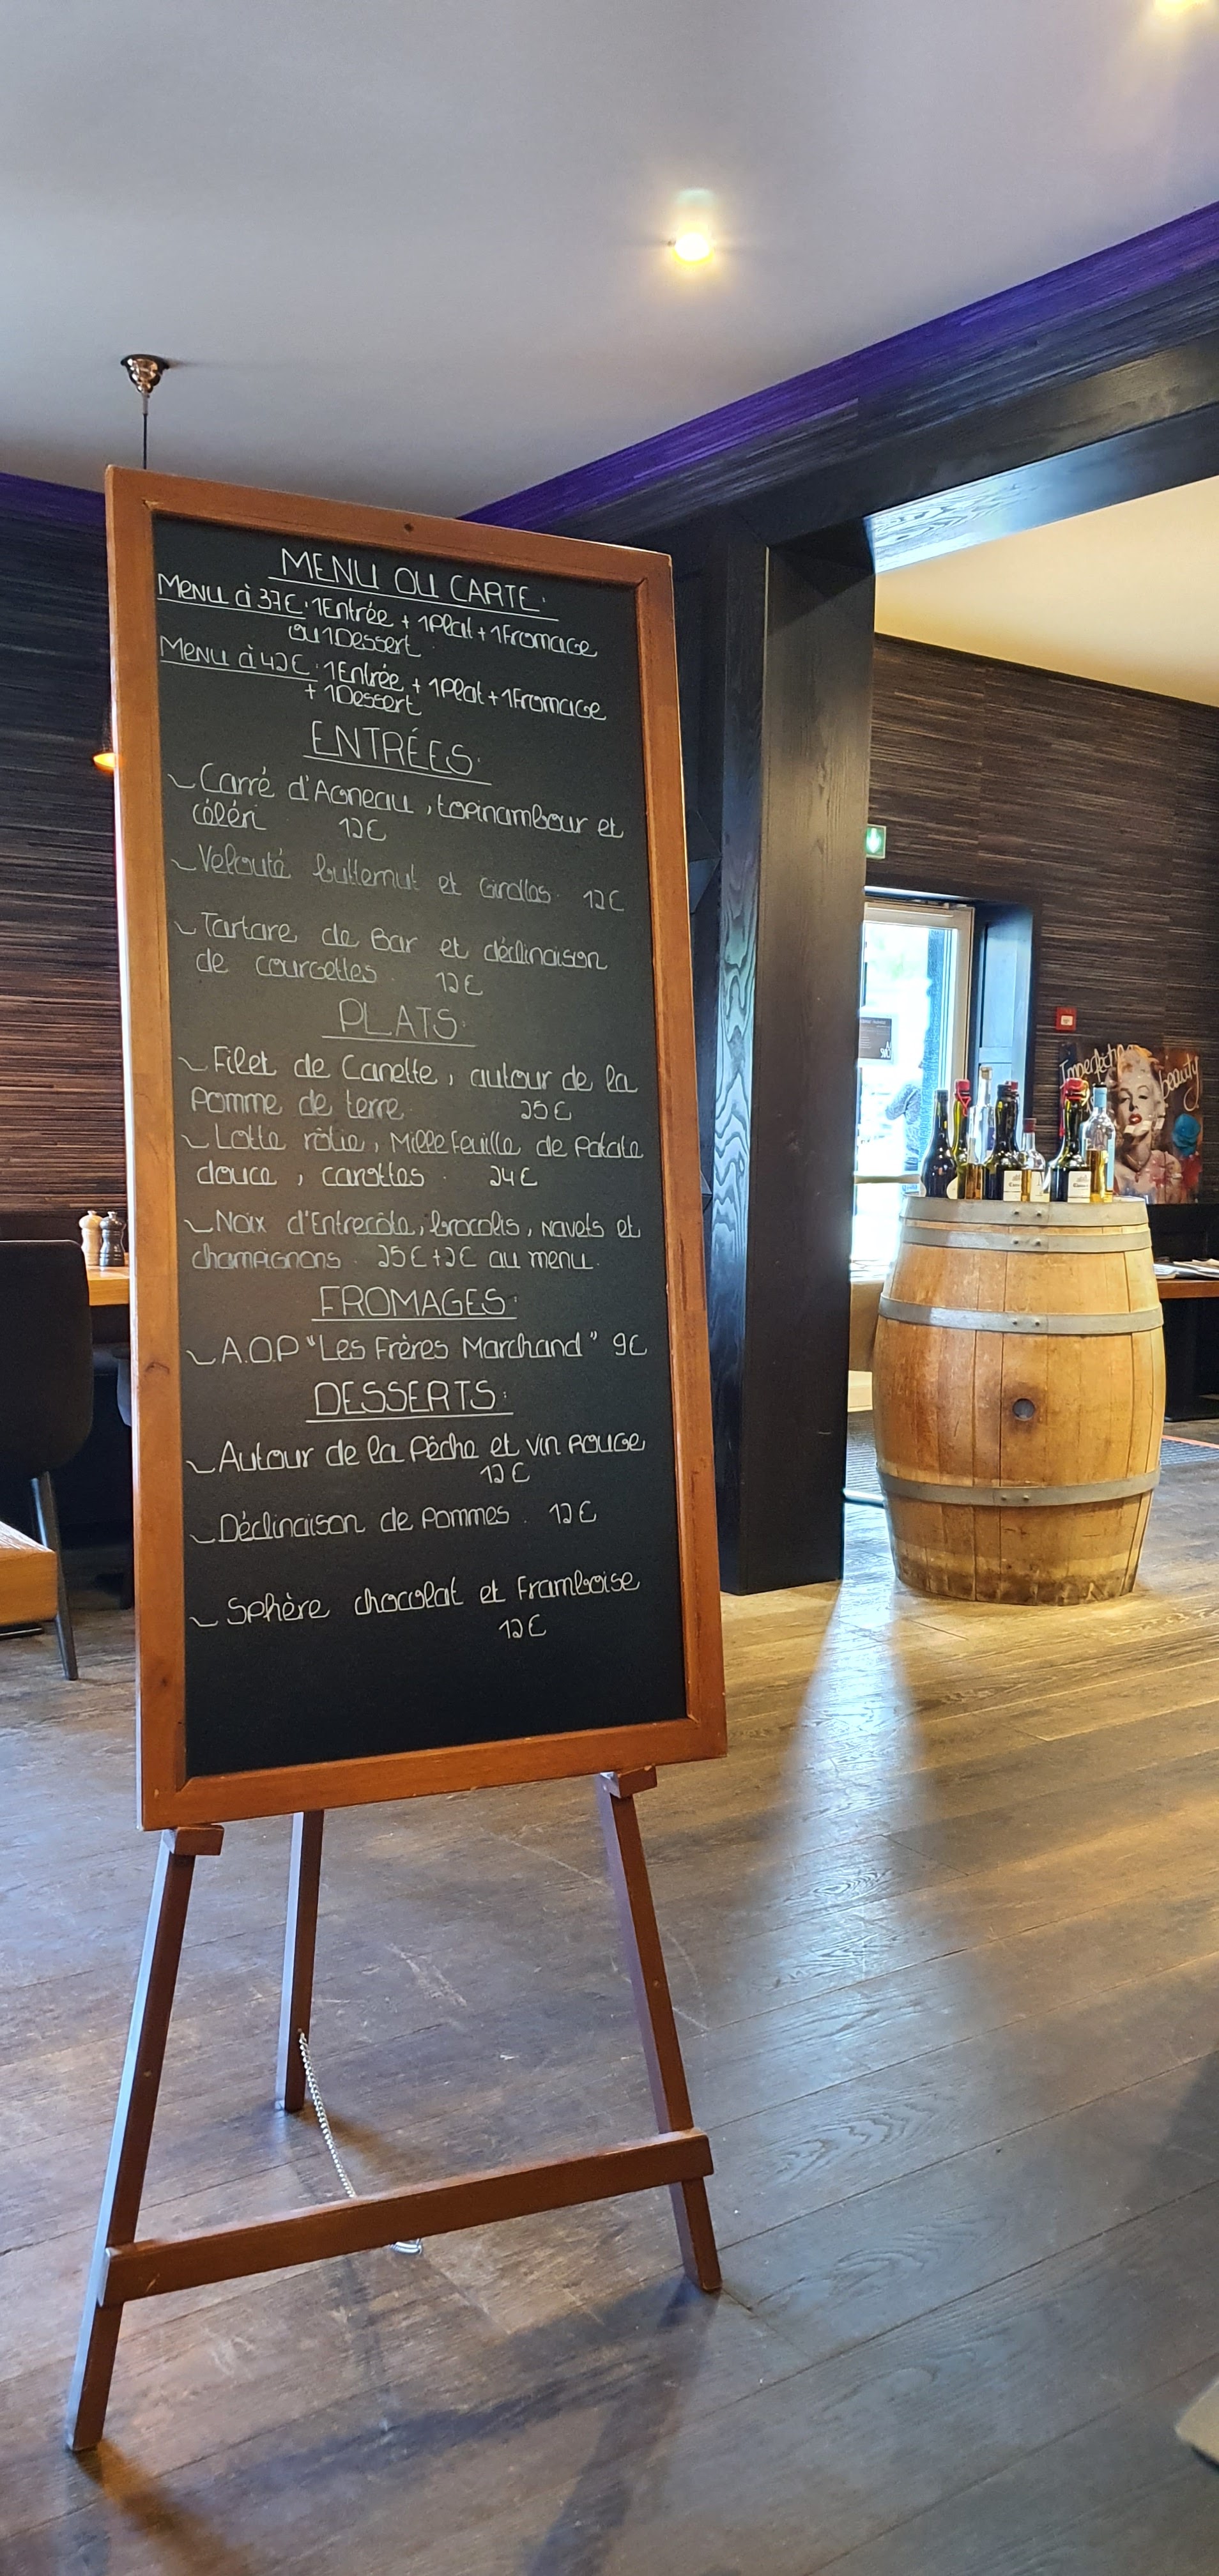 MENU OU CARTE:
Menu à 37€: 1Entrée + 1Plat + 1Fromage
ou 1Dessert
Menu à 42€: 1Entrée + 1Plat + 1Fromage
+ 1Dessert
ENTRÉES:
Carré d'Agneau, topinambour et
céléri 12€
Velouté butternut et Girolles. 12€
Tartare de Bar et déclinaison
de courgettes. 12€
PLATS:
Filet de Canette, autour de la
Pomme de terre. 25€
Lotte rôtie, Millefeuille de Patate
douce, carottes. 24€
Noix d'Entrecôte, brocolis, navets et
champignons. 25€ +2€ au menu.
FROMAGES:
A.O.P "Les Frères Marchand" 9€
DESSERTS:
Autour de la Pêche et vin rouge
12€
Déclinaison de Pommes. 12€
Sphère chocolat et Framboise
12€
beauty